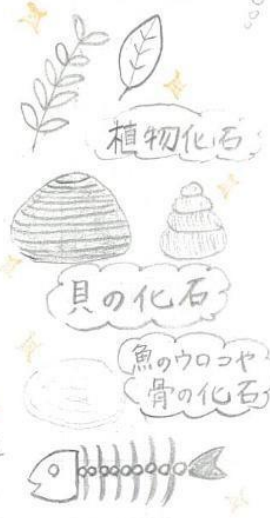 植物化石
貝の化石
魚のウロコや
骨の化石